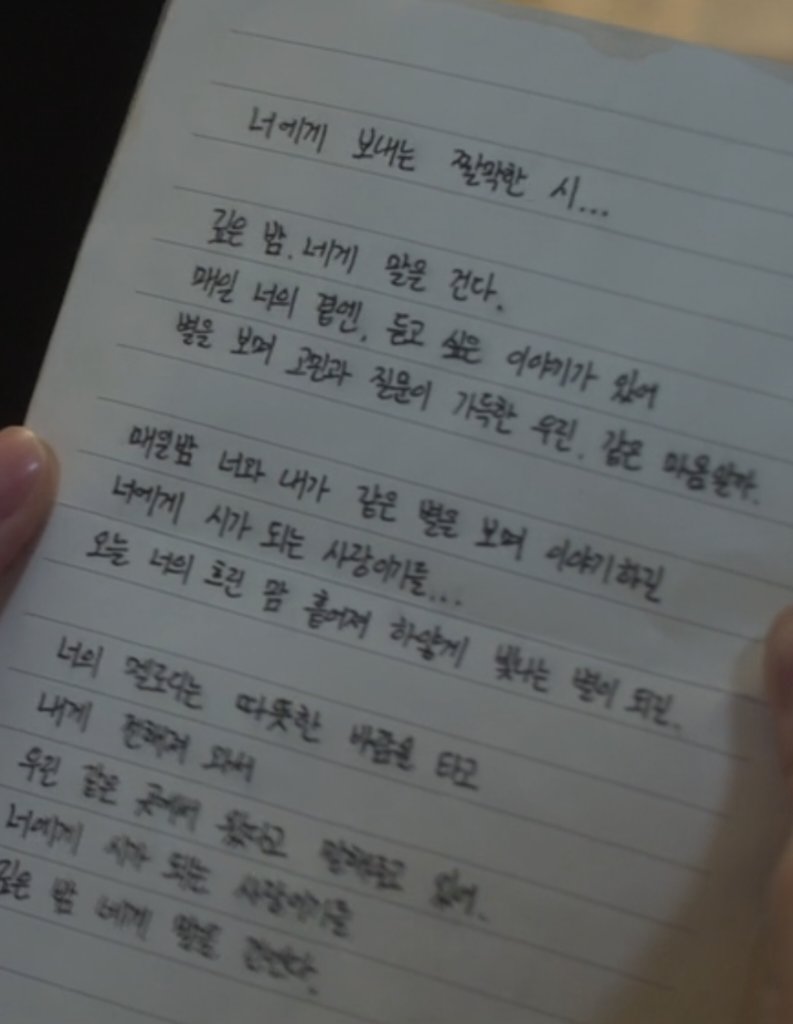 너에게 보내는 짤막한 시...
깊은 밤. 네게 말을 건다.
매일 너의 곁엔, 듣고 싶은 이야기가 있어
별을 보며 고민과 질문이 가득한 우린, 같은 마음일까.
매일밤 너와 내가 같은 별을 보며 이야기하길
너에게 시가 되는 사람이기를...
오늘 너의 흐린 맘 흩어져 하얗게 빛나는 별이 되길.
너의 멜로디는 따뜻한 바람을 타고
내게 전해져 와서
우린 같은 곳에서 왔다고 말해주고 있어.
너에게 시가 되는 사람이기를
깊은 밤 네게 말을